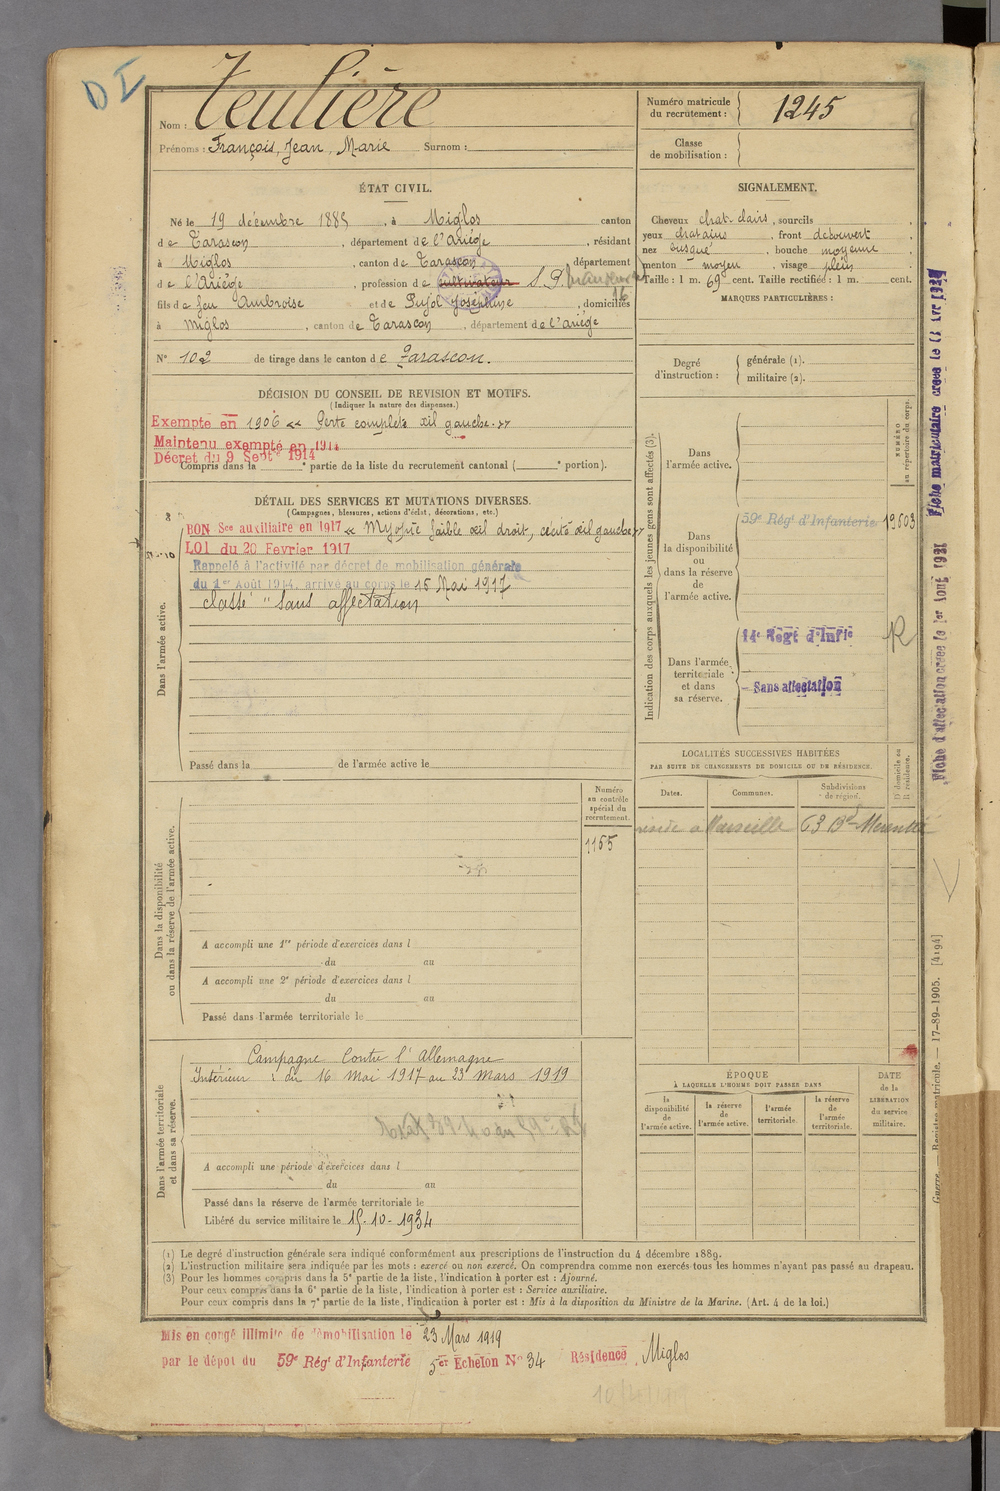 D I
Nom : Teulière
Prénoms : François, Jean, Marie Surnom :
Numéro matricule du recrutement : 1245
Classe de mobilisation :
ÉTAT CIVIL.
Né le 19 décembre 1885, à Miglos canton
de Tarascon, département de l'Ariège, résidant
à Miglos, canton de Tarascon, département
de l'Ariège, profession de cultivateur S.P.
fils de feu Ambroise et de Pujol Joséphine, domiciliés
à Miglos, canton de Tarascon, département de l'Ariège
N° 102 de tirage dans le canton de Tarascon.
SIGNALEMENT.
Cheveux chat-clairs, sourcils
yeux chatains, front découvert
nez busqué, bouche moyenne
menton moyen, visage plein
Taille : 1 m. 69 cent. Taille rectifiée : 1 m. cent.
MARQUES PARTICULIÈRES :
Degré d'instruction :
générale (1).
militaire (2).
DÉCISION DU CONSEIL DE REVISION ET MOTIFS.
(Indiquer la nature des dispenses.)
Exempté en 1906 « Perte complète œil gauche. »
Maintenu exempté en 1914
Décret du 9 Sept 1914
Compris dans la e partie de la liste du recrutement cantonal ( e portion).
DÉTAIL DES SERVICES ET MUTATIONS DIVERSES.
(Campagnes, blessures, actions d'éclat, décorations, etc.)
Dans l'armée active.
BON Sce auxiliaire en 1917 « Myopie faible œil droit, cécité œil gauche »
LOI du 20 Fevrier 1917
Rappelé à l'activité par décret de mobilisation générale
du 1er Août 1914, arrivé au corps le 15 Mai 1917
classé "sans affectation
Passé dans la de l'armée active le
Indication des corps auxquels les jeunes gens sont affectés (3).
NUMÉRO au répertoire du corps.
Dans l'armée active.
Dans la disponibilité ou dans la réserve de l'armée active.
59e Régt d'Infanterie 19503
Dans l'armée territoriale et dans sa réserve.
14e Régt d'Infie R
Sans affectation
Fiche matriculaire créée le
Fiche d'affectation créée le 1er Août 1931
LOCALITÉS SUCCESSIVES HABITÉES
PAR SUITE DE CHANGEMENTS DE DOMICILE OU DE RÉSIDENCE.
Dates. Communes. Subdivisions de région. D' domicile ou R résidence.
réside à Marseille 63 Bd
Dans la disponibilité ou dans la réserve de l'armée active.
Numéro au contrôle spécial du recrutement.
1155
A accompli une 1re période d'exercices dans l
du au
A accompli une 2e période d'exercices dans l
du au
Passé dans l'armée territoriale le
Dans l'armée territoriale et dans sa réserve.
Campagne contre l'Allemagne
Intérieur : du 16 Mai 1917 au 23 Mars 1919
A accompli une période d'exercices dans l
du au
Passé dans la réserve de l'armée territoriale le
Libéré du service militaire le 15-10-1934
ÉPOQUE
À LAQUELLE L'HOMME DOIT PASSER DANS
la disponibilité de l'armée active.
la réserve de l'armée active.
l'armée territoriale.
la réserve de l'armée territoriale.
DATE de la LIBÉRATION du service militaire.
Guerre. — Registre matricule. — 17-89-1905. [4194]
(1) Le degré d'instruction générale sera indiqué conformément aux prescriptions de l'instruction du 4 décembre 1889.
(2) L'instruction militaire sera indiquée par les mots : exercé ou non exercé. On comprendra comme non exercés tous les hommes n'ayant pas passé au drapeau.
(3) Pour les hommes compris dans la 5e partie de la liste, l'indication à porter est : Ajourné.
Pour ceux compris dans la 6e partie de la liste, l'indication à porter est : Service auxiliaire.
Pour ceux compris dans la 7e partie de la liste, l'indication à porter est : Mis à la disposition du Ministre de la Marine. (Art. 4 de la loi.)
Mis en congé illimité de démobilisation le 23 Mars 1919
par le dépôt du 59e Régt d'Infanterie 5er Echelon N° 34 Résidence, Miglos